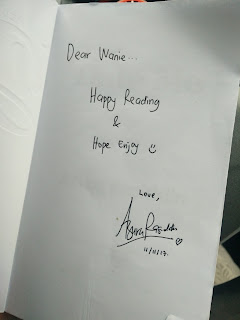 Dear Wanie...
Happy Reading
&
Hope Enjoy
Love,
11/11/17.